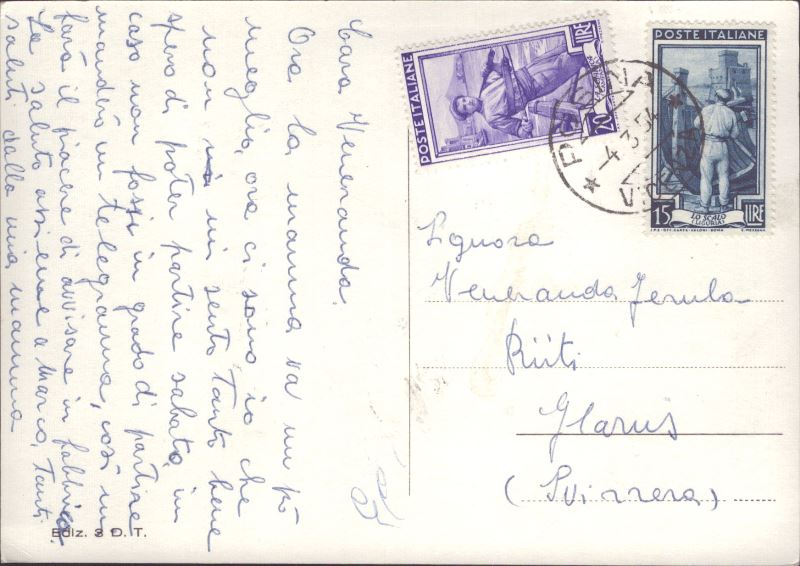 Cara Veneranda,
Ora la mamma va un pò
meglio, ora ci sono io che
non mi sento tanto bene
spero di poter partire sabato, in
caso non fossi in grado di partire
manderò un telegramma, così mi
farà il piacere di avvisare in fabbrica
La saluto assieme a Marco, Tanti
saluti dalla mia mamma
Ediz. S D. T.
POSTE ITALIANE
LIRE 20
POSTE ITALIANE
15 LIRE
LO SCALO
(LIGURIA)
4.3.54
VICENZA
Signora
Veneranda Ferula
Rüti
Glarus
(Svizzera)